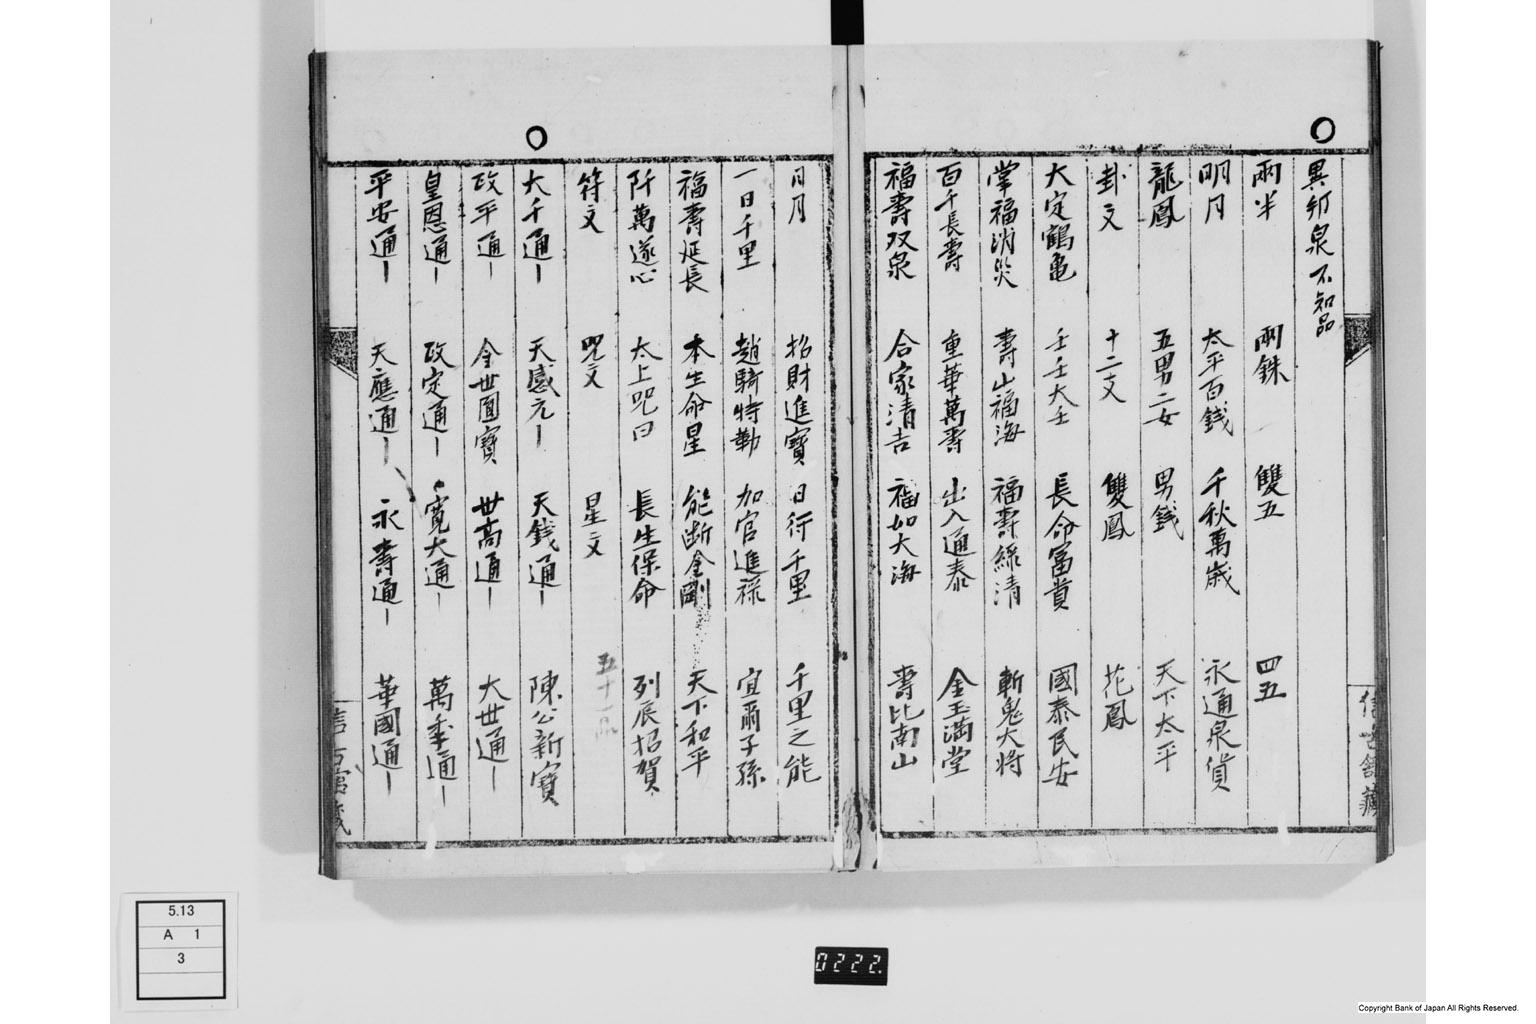 ○
異形泉 不知品
兩半 兩銖 雙五 四五
明月 太平百錢 千秋萬歳 永通泉貨
龍鳳 五男二女 男錢 天下太平
卦文 十二支 雙鳳 花鳳
大定鶴亀 壬壬大壬 長命冨貴 國泰民安
掌福消災 壽山福海 福壽綿清 斬鬼大将
百千長壽 重華萬壽 出入通泰 金玉満堂
福壽双泉 合家清吉 福如大海 壽比南山
日月 招財進寳 日行千里 千里之能
一日千里 趙騎特勒 加官進禄 宜爾子孫
福壽延長 本生命星 能断金剛 天下和平
阡萬遂心 太上咒曰 長生保命 列辰招賀
符文 咒文 星文 五十一品
○
大千通｜ 天感元｜ 天錢通｜ 陳公新寳
政平通｜ 金世圓寳 世高通｜ 大世通｜
皇恩通｜ 政定通｜ 寛大通｜ 萬季通｜
平安通｜ 天應通｜ 永壽通｜ 華國通｜
信古館藏
信古館藏
5.13
A 1
3
0222.
Copyright Bank of Japan All Rights Reserved.